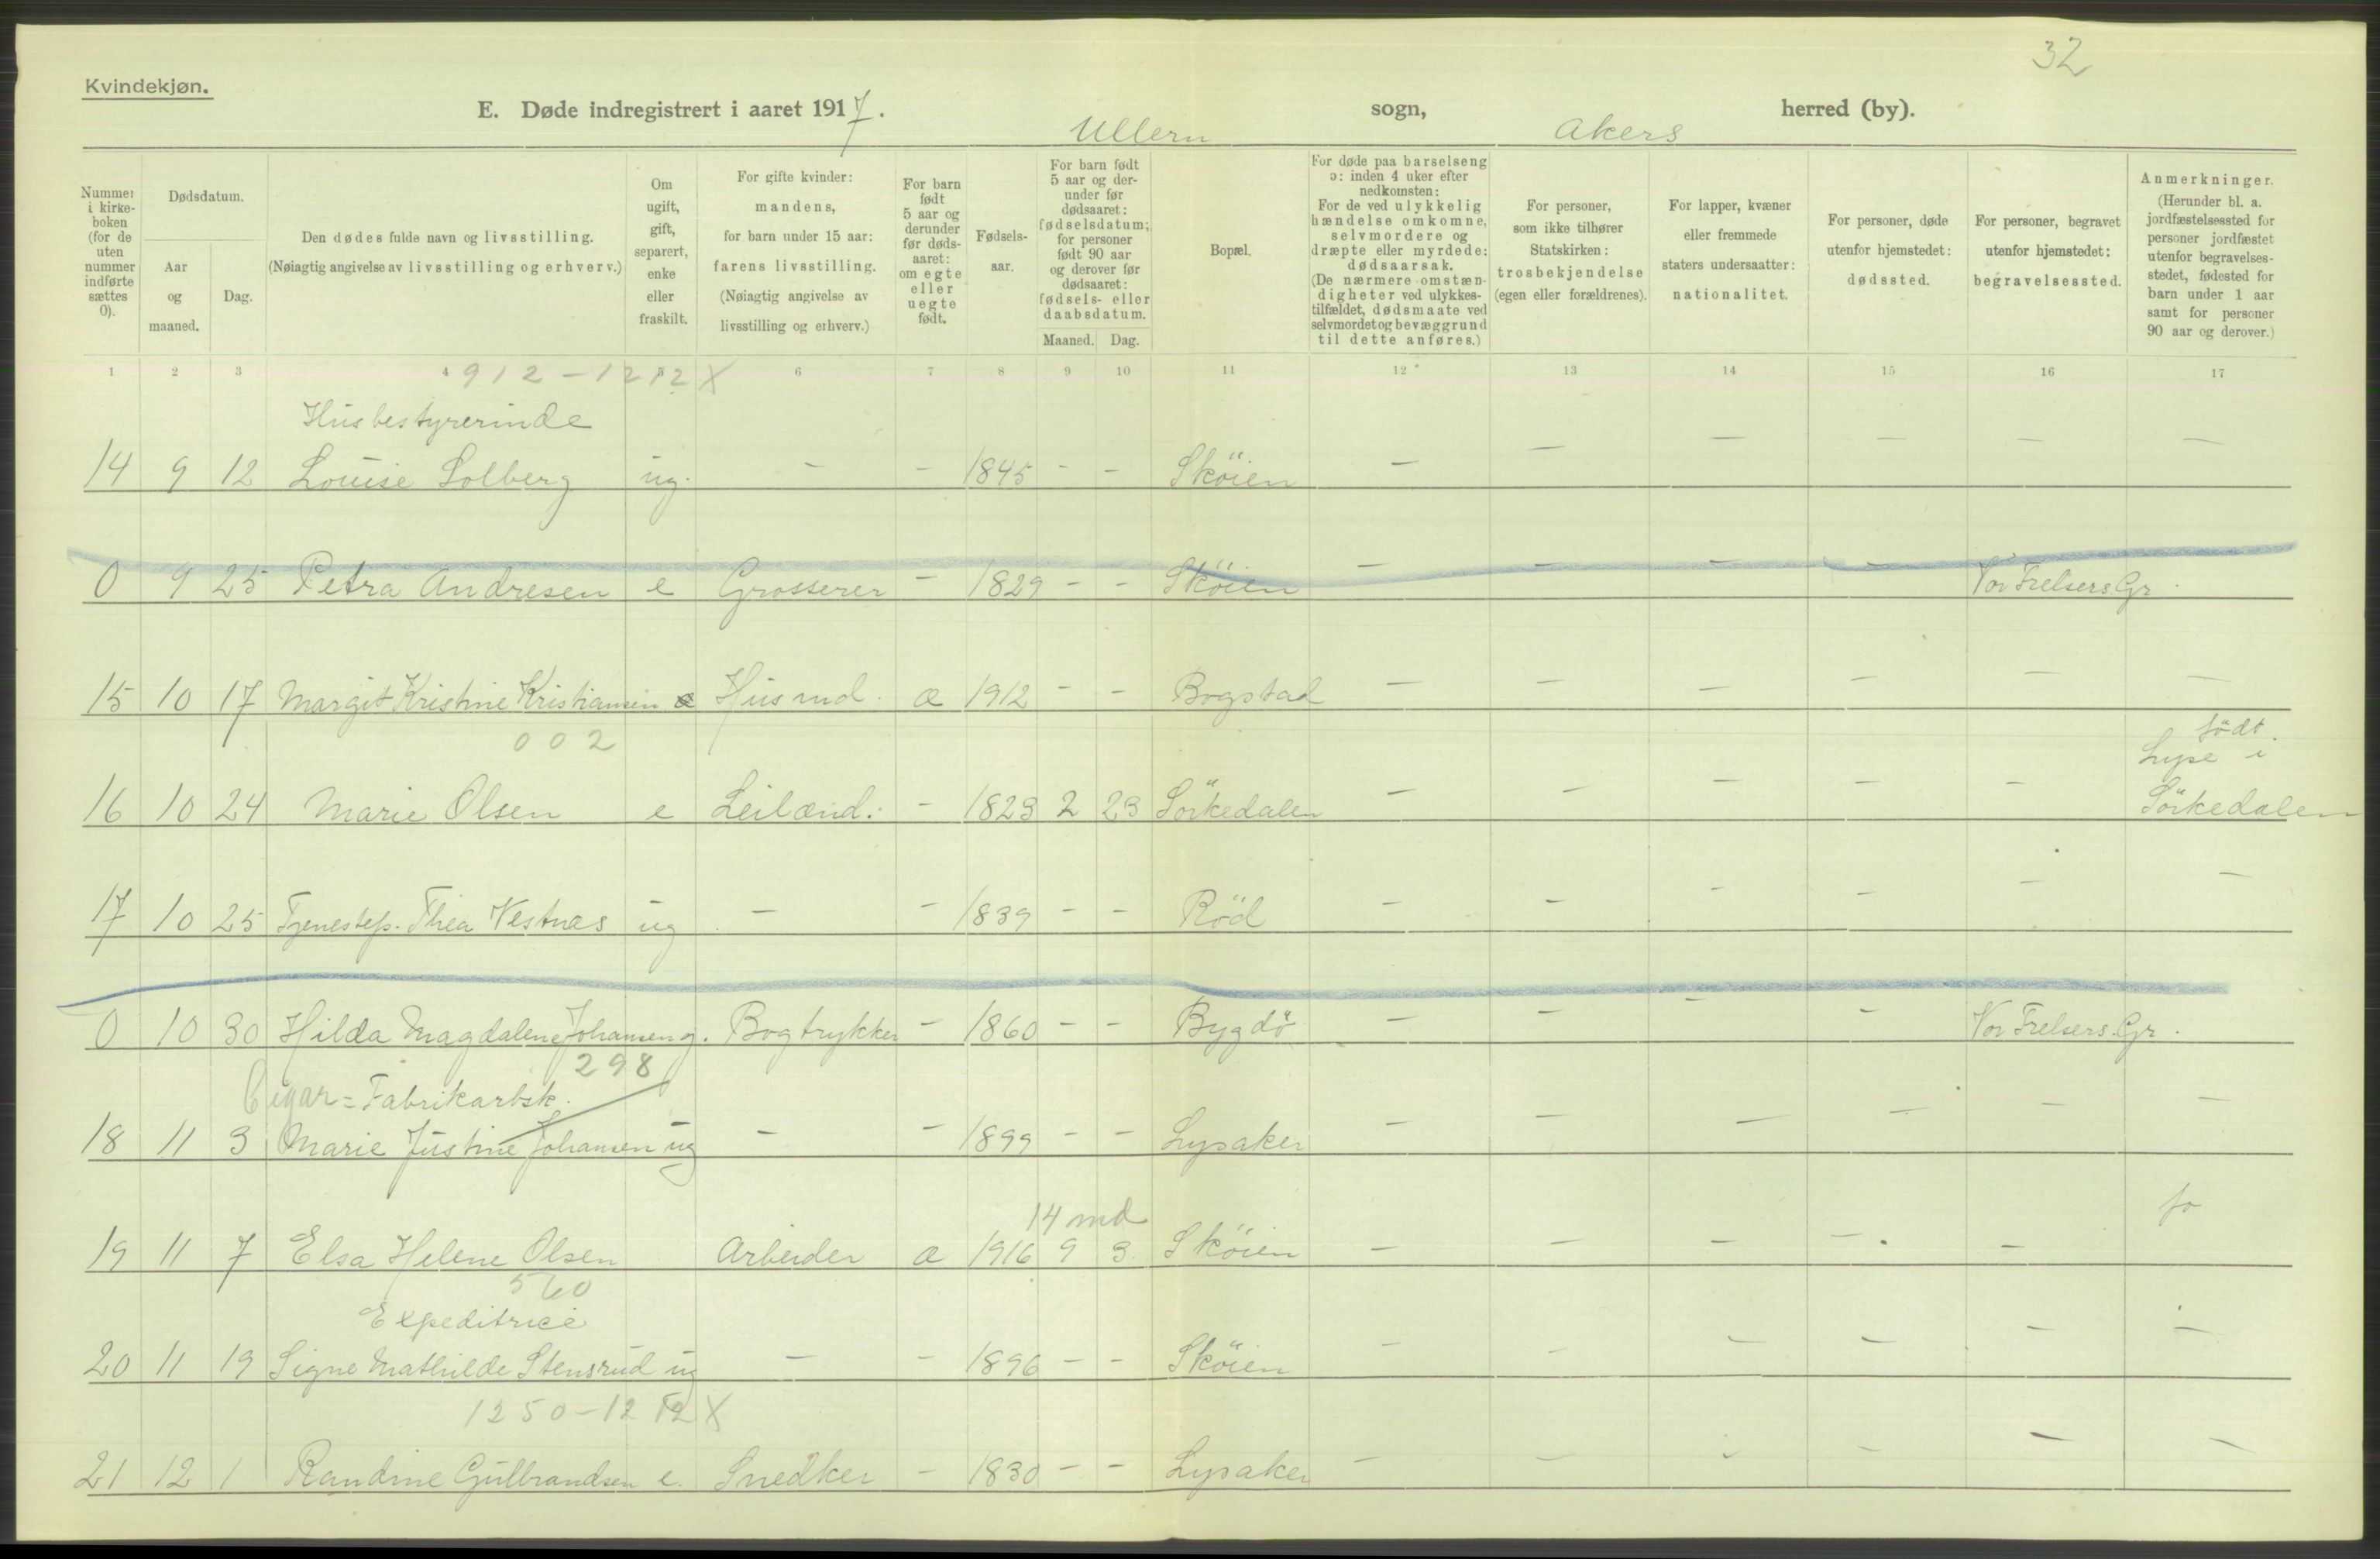 32
Kvindekjøn.
E. Døde indregistrert i aaret 1917. Ullern sogn, Akers herred (by).
Nummer i kirkeboken (for de uten nummer indførte sættes 0).
Dødsdatum.
Aar og maaned.
Dag.
Den dødes fulde navn og livsstilling.
(Nøiagtig angivelse av livsstilling og erhverv.)
Om ugift, gift, separert, enke eller fraskilt.
For gifte kvinder: mandens, for barn under 15 aar: farens livsstilling. (Nøiagtig angivelse av livsstilling og erhverv.)
For barn født 5 aar og derunder før dødsaaret: om egte eller uegte født.
Fødselsaar.
For barn født 5 aar og derunder før dødsaaret: fødselsdatum; for personer født 90 aar og derover før dødsaaret: fødsels- eller daabsdatum.
Maaned. Dag.
Bopæl.
For døde paa barselseng ɔ: inden 4 uker efter nedkomsten: For de ved ulykkelig hændelse omkomne, selvmordere og dræpte eller myrdede: dødsaarsak. (De nærmere omstændigheter ved ulykkestilfældet, dødsmaate ved selvmordet og bevæggrund til dette anføres.)
For personer, som ikke tilhører Statskirken: trosbekjendelse (egen eller forældrenes).
For lapper, kvæner eller fremmede staters undersaatter: nationalitet.
For personer, døde utenfor hjemstedet: dødssted.
For personer, begravet utenfor hjemstedet: begravelsessted.
Anmerkninger. (Herunder bl. a. jordfæstelsessted for personer jordfæstet utenfor begravelsesstedet, fødested for barn under 1 aar samt for personer 90 aar og derover.)
1 2 3 4 5 6 7 8 9 10 11 12 13 14 15 16 17
912-1212 X
Husbestyrerinde
14 9 12 Louise Solberg ug. - - 1845 - - Sköien - - - - - -
0 9 25 Petra Andresen e Grosserer - 1829 - - Sköien - - - - Vor Frelsers Gr.
15 10 17 Margit Kristine Kristiansen Husmd. æ 1912 - - Bogstad - - - - - -
002
født
Lype i
16 10 24 Marie Olsen e Leilænd: - 1823 2 23 Sörkedalen - - - - - Sörkedalen
17 10 25 Tjenestep. Thea Vestnæs ug - - 1839 - - Röd - - - - - -
0 10 30 Hilda Magdalene Johansen g. Bogtrykker - 1860 - - Bygdö - - - - Vor Frelsers Gr.
298
Cigar = Fabrikarbsk.
18 11 3 Marie Justine Johansen ug - - 1899 - - Lysaker - - - - - -
14 md
fo
19 11 7 Elsa Helene Olsen Arbeider æ 1916 9 3. Sköien - - - - -
560
Expeditrice
20 11 19 Signe Mathilde Stensrud ug - - 1896 - - Sköien - - - - - -
1250-1212 X
21 12 1 Randine Gulbrandsen e. Snedker - 1830 - - Lysaker - - - - - -